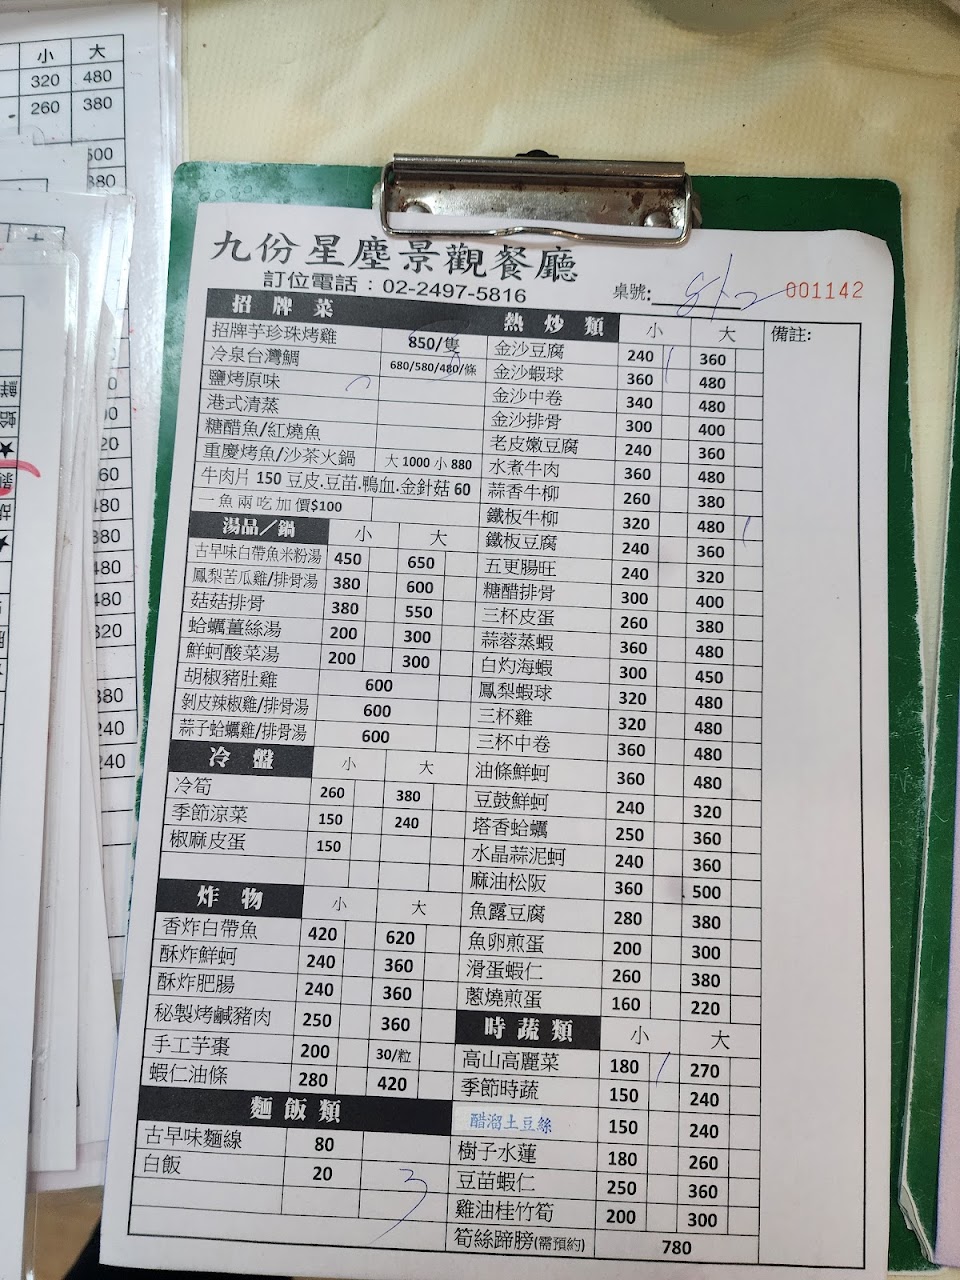 九份星塵景觀餐廳
訂位電話：02-2497-5816
桌號:
001142
招牌菜
招牌芋珍珠烤雞 850/隻
冷泉台灣鯛 680/580/480/條
鹽烤原味
港式清蒸
糖醋魚/紅燒魚
重慶烤魚/沙茶火鍋 大1000 小880
牛肉片 150 豆皮.豆苗.鴨血.金針菇 60
一魚兩吃加價$100
湯品／鍋 小 大
古早味白帶魚米粉湯 450 650
鳳梨苦瓜雞/排骨湯 380 600
菇菇排骨 380 550
蛤蠣薑絲湯 200 300
鮮蚵酸菜湯 200 300
胡椒豬肚雞 600
剝皮辣椒雞/排骨湯 600
蒜子蛤蠣雞/排骨湯 600
冷盤 小 大
冷筍 260 380
季節涼菜 150 240
椒麻皮蛋 150
炸物 小 大
香炸白帶魚 420 620
酥炸鮮蚵 240 360
酥炸肥腸 240 360
秘製烤鹹豬肉 250 360
手工芋棗 200 30/粒
蝦仁油條 280 420
麵飯類
古早味麵線 80
白飯 20 3
熱炒類 小 大 備註:
金沙豆腐 240 360
金沙蝦球 360 480
金沙中卷 340 480
金沙排骨 300 400
老皮嫩豆腐 240 360
水煮牛肉 360 480
蒜香牛柳 260 380
鐵板牛柳 320 480
鐵板豆腐 240 360
五更腸旺 240 320
糖醋排骨 300 400
三杯皮蛋 260 380
蒜蓉蒸蝦 360 480
白灼海蝦 300 450
鳳梨蝦球 320 480
三杯雞 320 480
三杯中卷 360 480
油條鮮蚵 360 480
豆鼓鮮蚵 240 320
塔香蛤蠣 250 360
水晶蒜泥蚵 240 360
麻油松阪 360 500
魚露豆腐 280 380
魚卵煎蛋 200 300
滑蛋蝦仁 260 380
蔥燒煎蛋 160 220
時蔬類 小 大
高山高麗菜 180 270
季節時蔬 150 240
醋溜土豆絲 150 240
樹子水蓮 180 260
豆苗蝦仁 250 360
雞油桂竹筍 200 300
筍絲蹄膀(需預約) 780
小 大
320 480
260 380